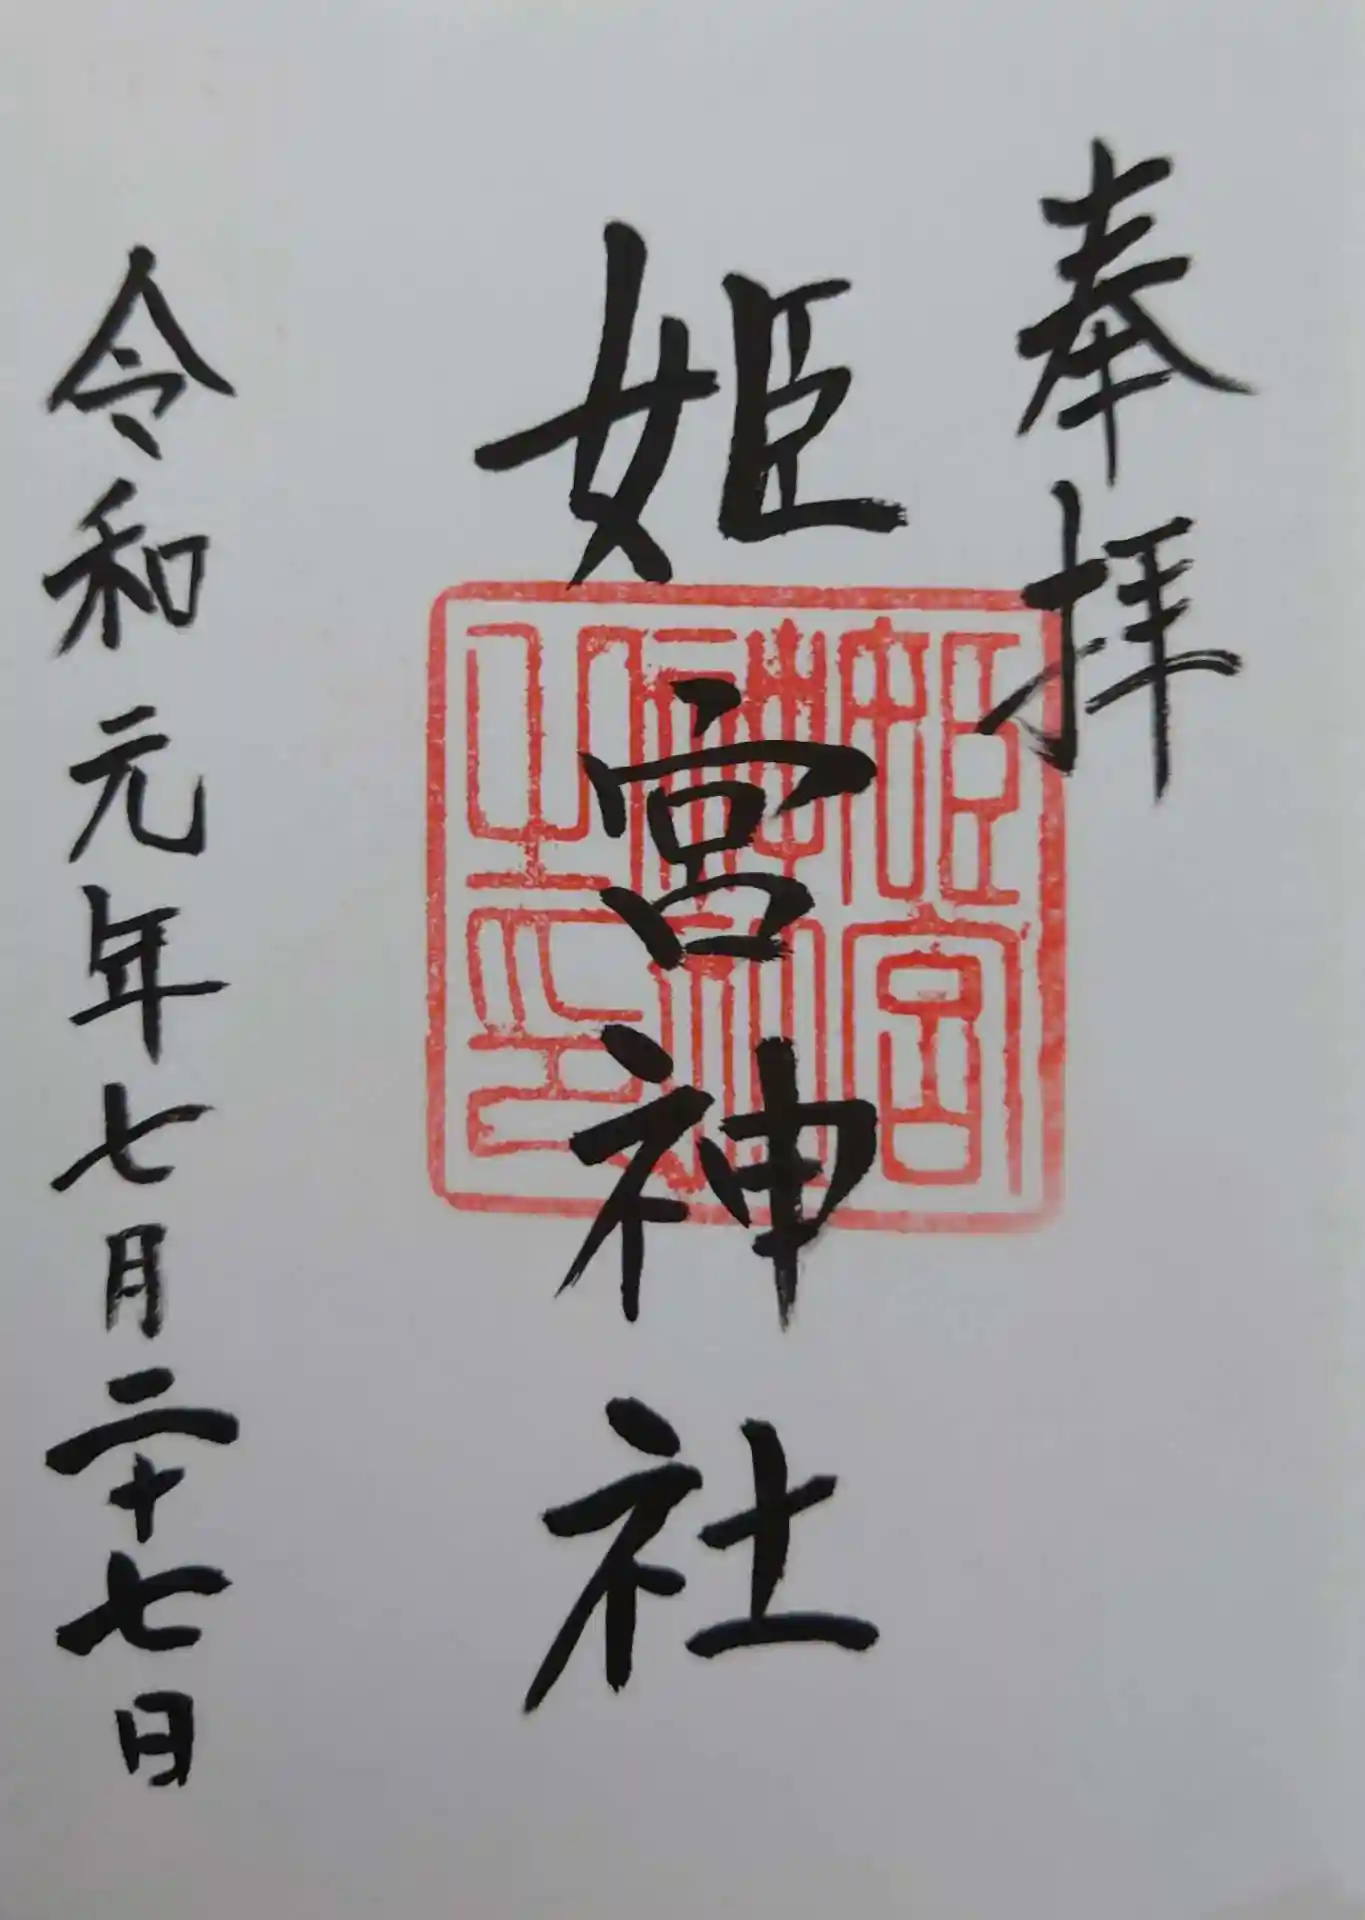 奉拝
姫宮神社
姫宮神社之印
令和元年七月二十七日